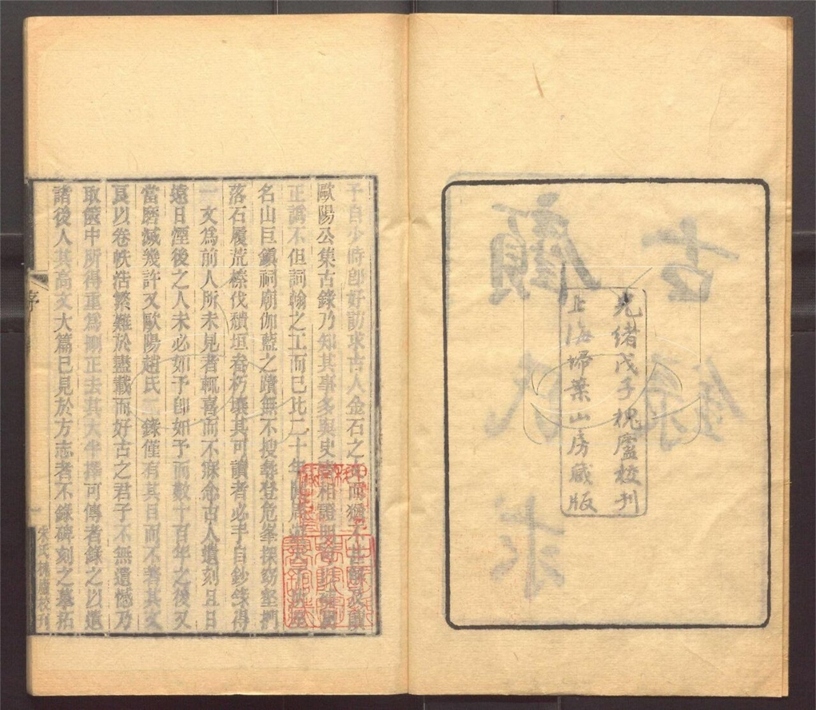 光緒戊子槐廬校刊
上海掃葉山房藏版
顧氏求古錄
予自少時卽好訪求古人金石之文而猶不甚解及讀
歐陽公集古錄乃知其事多與史書相證明可以補闕
正譌不但詞翰之工而已比二十年間周游天下所至
名山巨鎭祠廟伽藍之蹟無不搜尋登危峯探窈壑捫
落石履荒榛伐頹垣畚朽壤其可讀者必手自鈔錄得
一文爲前人所未見者輒喜而不寐念古人遺刻且日
遠日煙後之人未必如予卽如予而數十百年之後又
當磨滅幾許又歐陽趙氏二錄僅有其目而不著其文
良以卷帙浩繁難於盡載而好古之君子不無遺憾乃
取篋中所得重爲刪正去其大半擇可傳者錄之以遺
諸後人其高文大篇已見於方志者不錄碑刻之摹拓
序
一
朱氏槐廬校刊